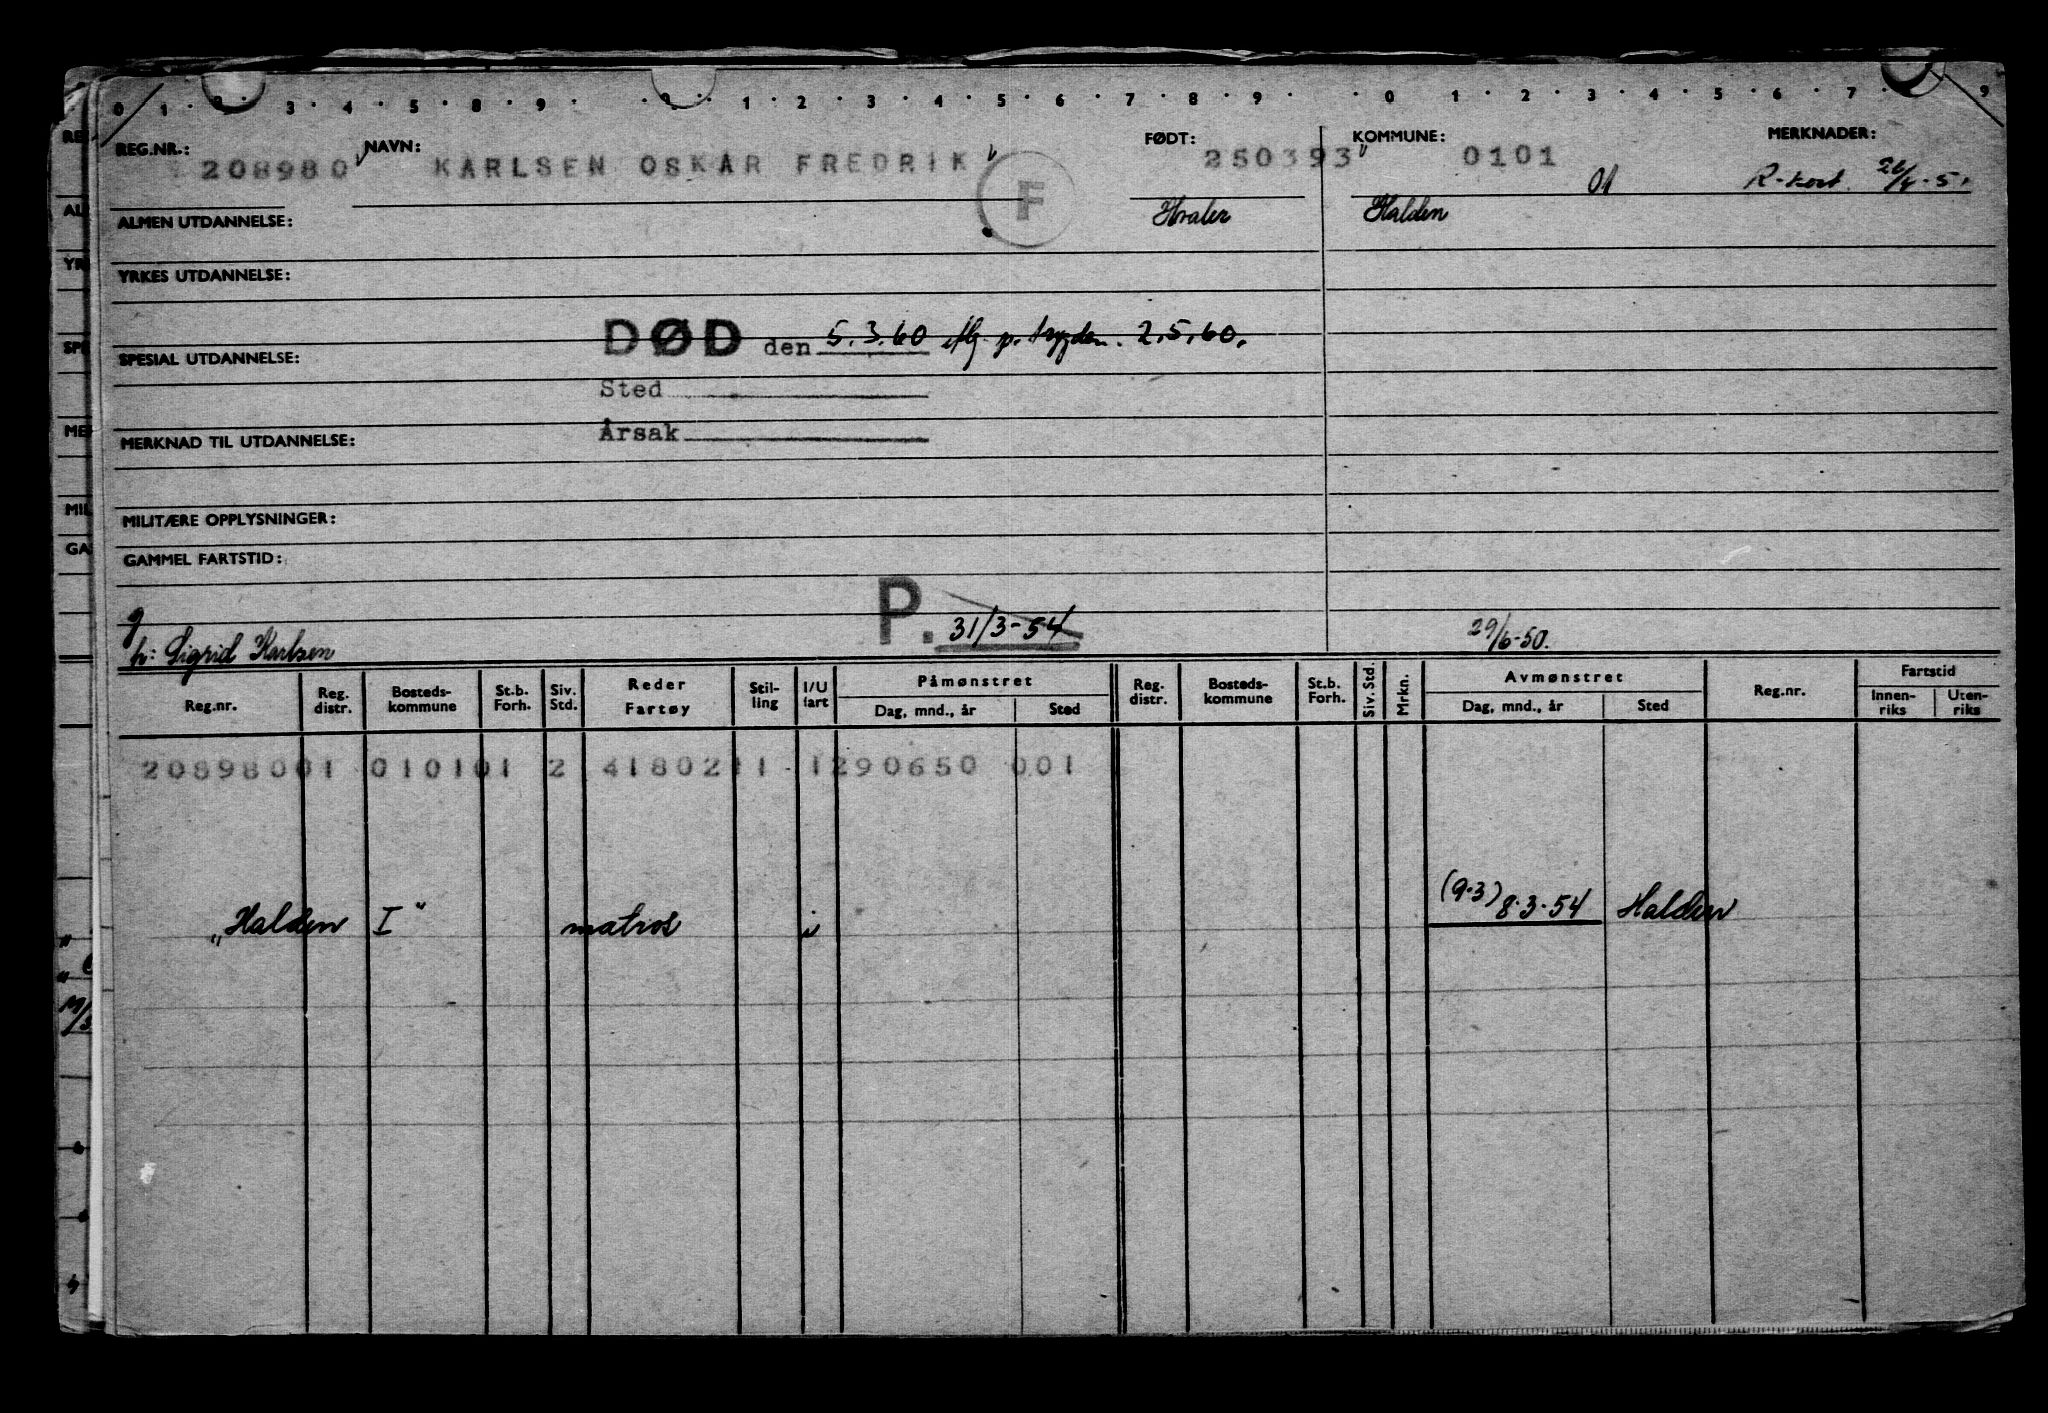 0 1 · 2 · 3 · 4 · 5 · 8 · 9 · 0 · · 1 · 2 · · 3 · · 4 · · 5 · 6 · · 7 · · 8 · · 9 · · · 0 · · 1 · · 2 · · 3 · · 4 · · 5 · · 6 · · 7 · 9
REG.NR.: NAVN: FØDT: KOMMUNE: MERKNADER:
208980 KARLSEN OSKAR FREDRIK 250393 0101 01 R-kort
F
Hvaler Halden
ALMEN UTDANNELSE:
YRKES UTDANNELSE:
DØD den 5.3.60 2.5.60.
SPESIAL UTDANNELSE:
Sted
Årsak
MERKNAD TIL UTDANNELSE:
MILITÆRE OPPLYSNINGER:
GAMMEL FARTSTID:
P. 31/3-54 29/6-50.
g
h: Sigrid Karlsen
Reg.nr. Reg. distr. Bosteds-kommune St.b. Forh. Siv. Std. Reder Fartøy Stil-ling I/U fart Påmønstret Dag, mnd., år Sted Reg. distr. Bosteds-kommune St.b. Forh. Siv. Std. Mrkn. Avmønstret Dag, mnd., år Sted Reg.nr. Fartstid Innen-riks Uten-riks
20898001 010101 2 4180211 1290650 001
"Halden I" matros i (9.3) 8.3.54 Halden